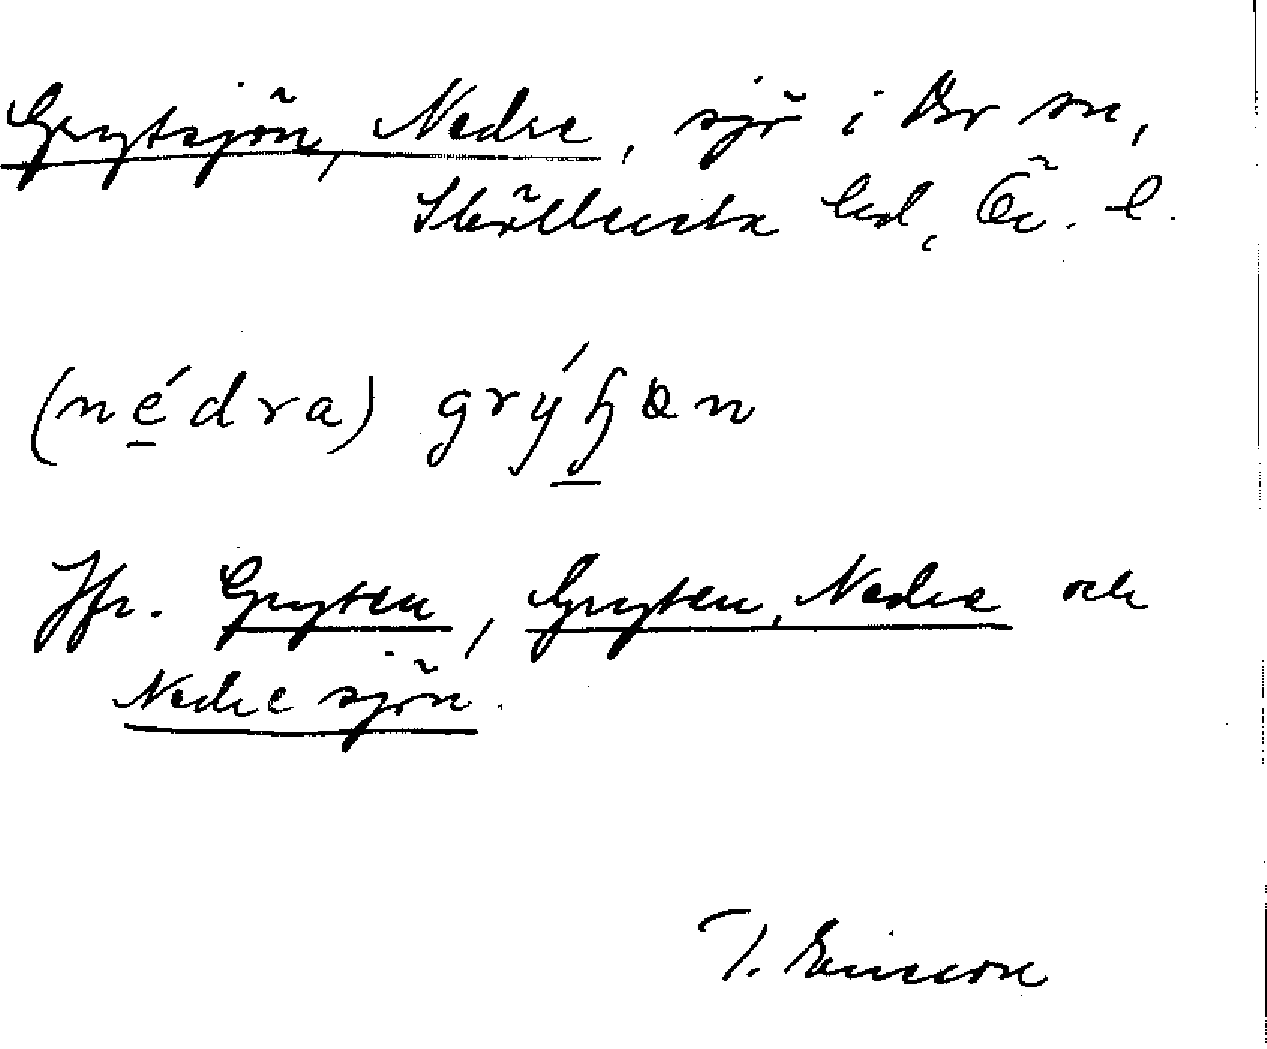 Grytsjön, Nedre, sjö i Br sn,
Skyllersta hd, Ör. l.
(nédra) grýʃɷn
Jfr. Gryten, Gryten, Nedre och
Nedre sjön.
T. Ericsson